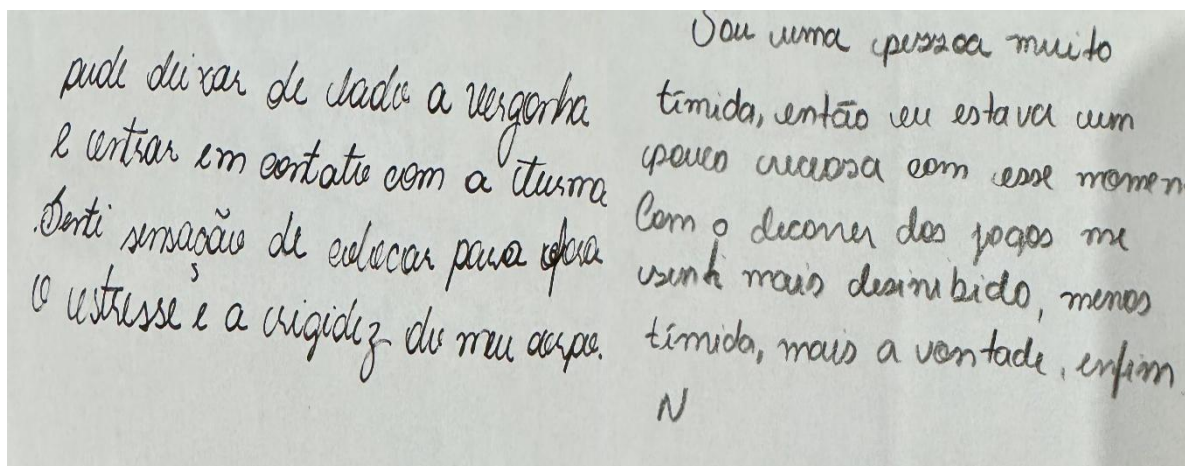 pude deixar de lado a vergonha
e entrar em contato com a turma
Senti sensação de colocar para fora
o estresse e a rigidez do meu corpo.
Sou uma pessoa muito
tímida, então eu estava um
pouco curiosa com esse momen
Com o decorrer dos jogos me
senti mais desinibido, menos
tímida, mais a vontade, enfim
N